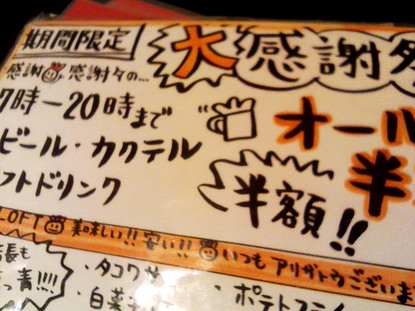 期間限定
大感謝祭
感謝感謝々の…
7時－20時まで
ビール・カクテル
フトドリンク
オール
半
半額!!
LOFT 美味しい!! 安い!! いつもアリガトウございま
長も
っ青!!!!
・タコワサ
・白菜
・ポテトフライ